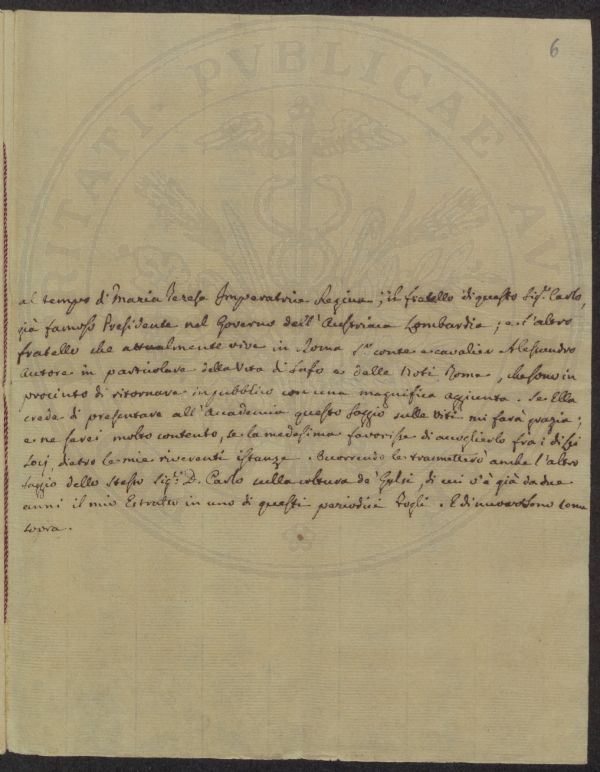 6
al tempo di Maria Teresa Imperatrice Regina; il fratello di questo Sig.r Carlo,
già famoso Presidente nel Governo dell'Austriaca Lombardia; e l'altro
fratello che attualmente vive in Roma S.r conte e cavalier Alessandro
Autore in particolare della Vita di Saffo e delle Noti Rome, che sono in
procinto di ritornare in pubblico con una magnifica aggiunta. Se Ella
crede di presentare all'Accademia questo Saggio sulle Viti mi farà grazia;
e ne sarei molto contento, se la medesima favorisse di accoglierlo fra i di Lei
Socj, dietro le mie riverenti istanze. Occorrendo le trasmetterò anche l'altro
Saggio dello stesso Sig.r D. Carlo sulla coltura de' Gelsi, di cui v'è già da due
anni il mio Estratto in uno di questi periodici Fogli. E di nuovo sono come
sopra.
RITATI PVBLICAE AV